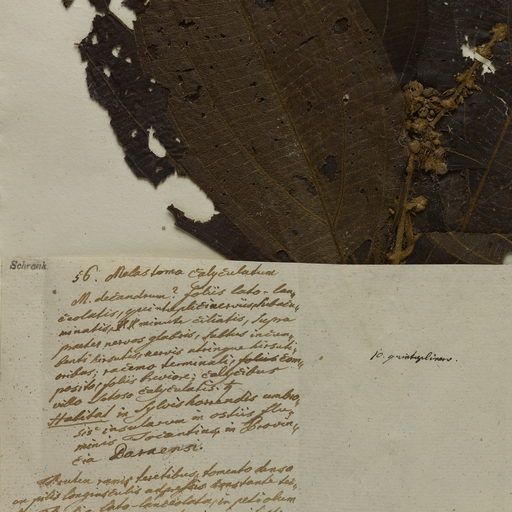 Schrank
56. Melastoma calyculatum
M. decandrum? foliis lato-lan,
ceolatis, quintuplicinerviis,
minutis, minute ciliatis, supra
praeter nervos glabris, subtus
hirsutis, nervis utrinque hirsuti,
oribus, racemo terminali, foliis com,
posito, foliis breviore; calycibus
villo calyculatis. ♄
Habitat in Sylvis horrendis umbro,
sis insularum in ostiis flu,
minis Tocantins, in Provin,
cia Paraensi.
Frutex ramis teretibus, tomento denso
lato-lanceolata, in petiolum
10. quintuplinerv.